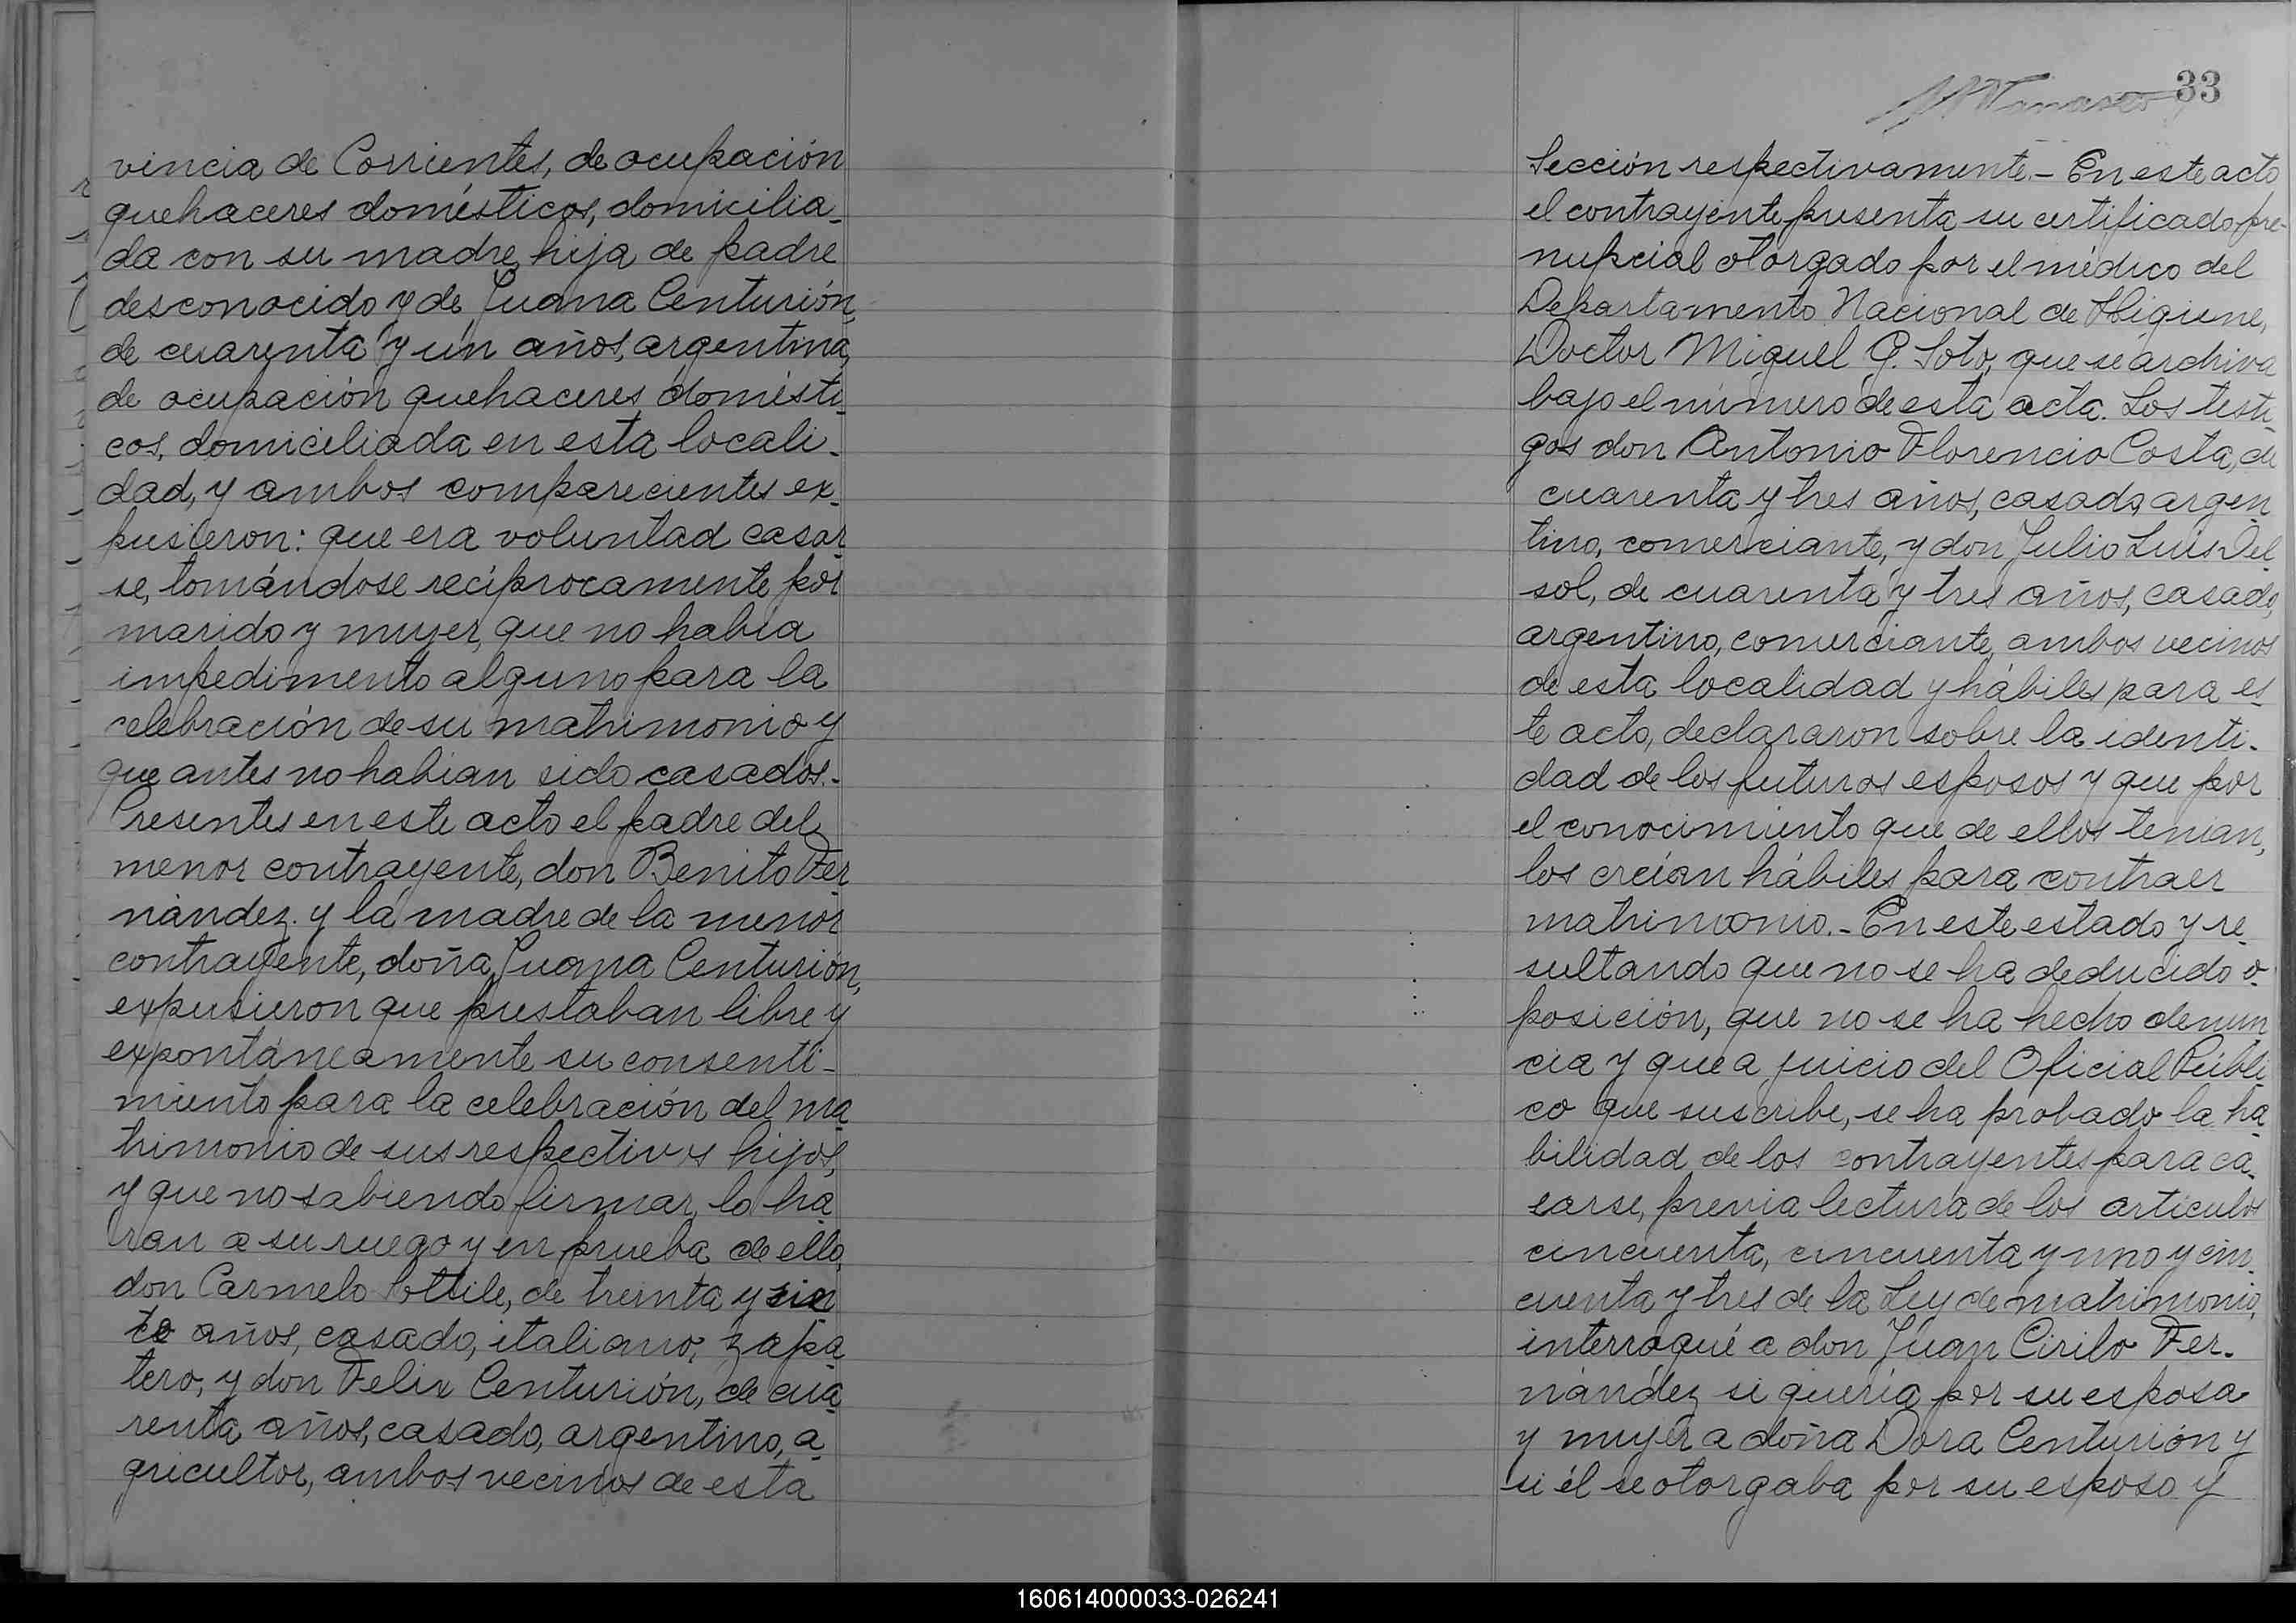 vincia de Corrientes, de ocupación
quehaceres domésticos, domicilia-
da con su madre, hija de padre
desconocido y de Juana Centurión,
de cuarenta y un años, argentina,
de ocupación quehaceres domésti-
cos, domiciliada en esta locali-
dad, y ambos comparecientes ex-
pusieron: que era voluntad casar-
se, tomándose recíprocamente por
marido y mujer, que no había
impedimento alguno para la
celebración de su matrimonio y
que antes no habian sido casados.-
Presentes en este acto el padre del
menor contrayente, don Benito Fer-
nández y la madre de la menor
contrayente, doña Juana Centurión,
expusieron que prestaban libre y
expontáneamente su consenti-
miento para la celebración del ma-
trimonio de sus respectivos hijos,
y que no sabiendo firmar, lo ha-
rán a su ruego y en prueba de ello,
don Carmelo Pottile, de treinta y sie-
te años, casado, italiano, zapa-
tero, y don Felix Centurión, de cua-
renta años, casado, argentino, a-
gricultor, ambos vecinos de esta
33
Sección respectivamente.- En este acto
el contrayente presenta su certificado pre-
nupcial otorgado por el médico del
Departamento Nacional de Higiene,
Doctor Miguel G. Soto, que se archiva
bajo el número de esta acta. Los testi-
gos don Antonio Florencio Costa, de
cuarenta y tres años, casado, argen-
tino, comerciante, y don Julio Luis Del-
sol, de cuarenta y tres años, casado,
argentino, comerciante, ambos vecinos
de esta localidad y hábiles para es-
te acto, declararon sobre la identi-
dad de los futuros esposos y que por
el conocimiento que de ellos tenían,
los creían hábiles para contraer
matrimonio.- En este estado y re-
sultando que no se ha deducido o-
posición, que no se ha hecho denun-
cia y que a juicio del Oficial Públi-
co que suscribe, se ha probado la ha-
bilidad de los contrayentes para ca-
sarse, previa lectura de los artículos
cincuenta, cincuenta y uno y cin-
cuenta y tres de la Ley de matrimonio,
interrogué a don Juan Cirilo Fer-
nández si quería por su esposa
y mujer a doña Dora Centurión y
si él se otorgaba por su esposo y
160614000033-026241